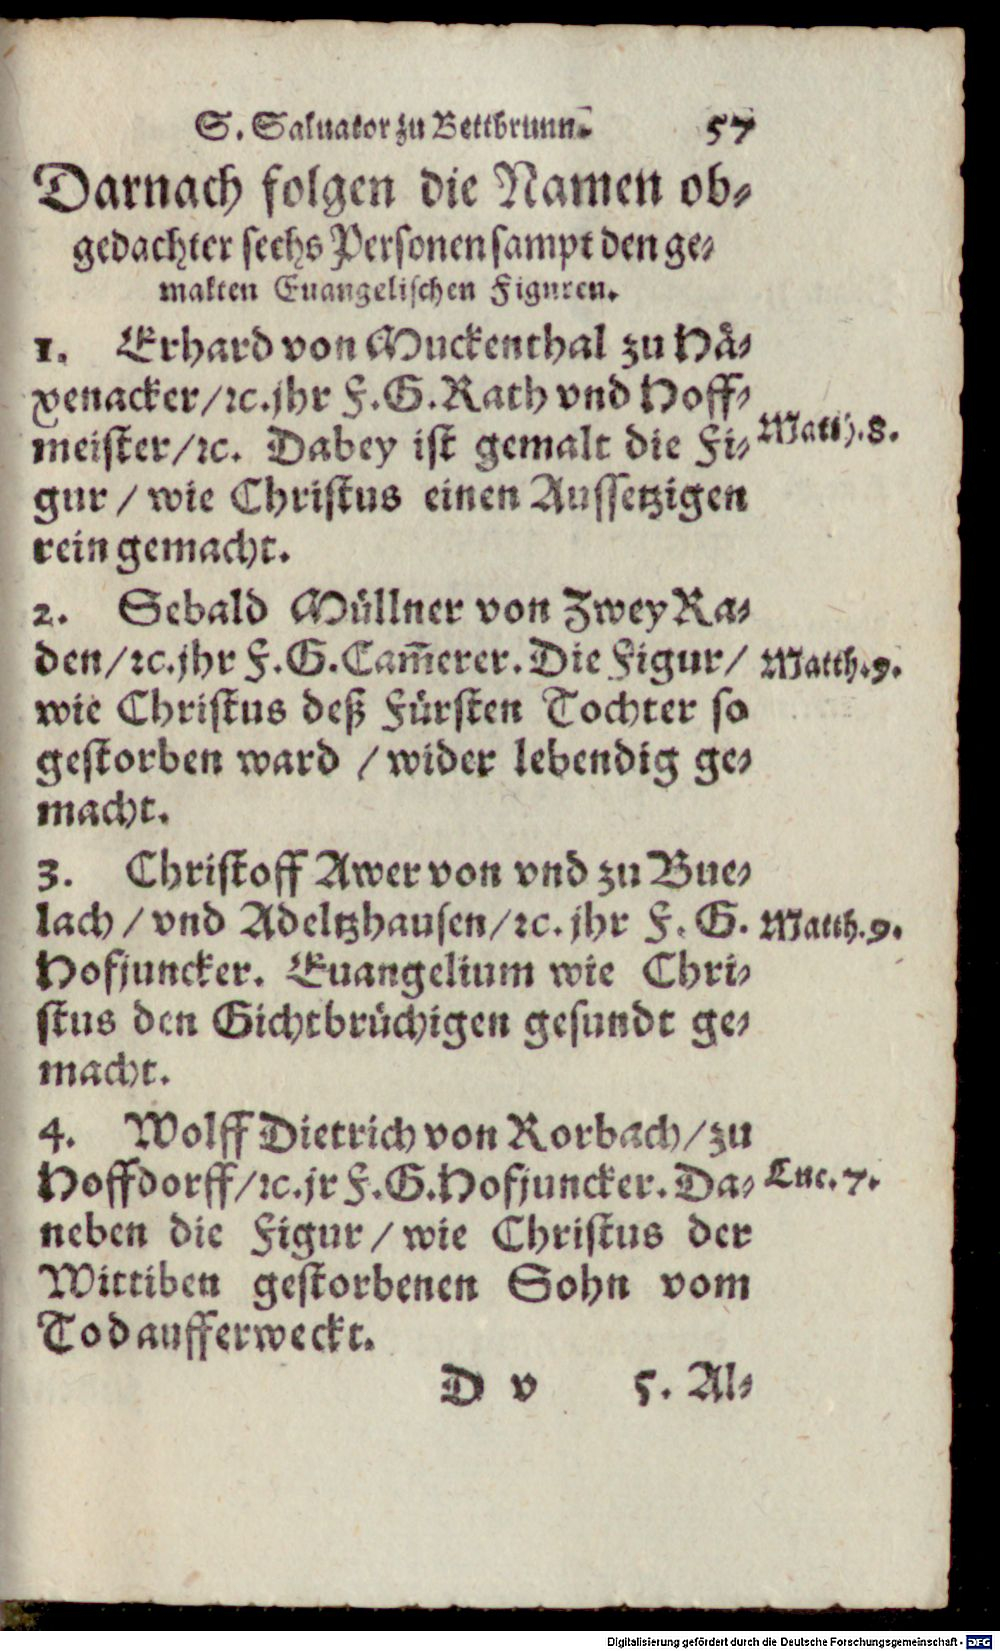 S. Saluator zu Bettbrunn. 57
Darnach folgen die Namen ob-
gedachter sechs Personen sampt den ge-
malten Euangelischen Figuren.
1. Erhard von Muckenthal zu Hå-
xenacker/ꝛc. jhr F. G. Rath vnd Hoff-
meister/ꝛc. Dabey ist gemalt die Fi-
Matth. 8.
gur / wie Christus einen Aussetzigen
rein gemacht.
2. Sebald Müllner von Zwey Ra-
den/ꝛc. jhr F. G. Cam̃erer. Die Figur/
Matth. 9.
wie Christus deß Fürsten Tochter so
gestorben ward / wider lebendig ge-
macht.
3. Christoff Awer von vnd zu Bue-
lach / vnd Adeltzhausen/ꝛc. jhr F. G.
Matth. 9.
Hofjuncker. Euangelium wie Chri-
stus den Gichtbrüchigen gesundt ge-
macht.
4. Wolff Dietrich von Rorbach/zu
Hoffdorff/ꝛc. jr F. G. Hofjuncker. Da-
Luc. 7.
neben die Figur / wie Christus der
Wittiben gestorbenen Sohn vom
Tod aufferweckt.
D v 5. Al-
Digitalisierung gefördert durch die Deutsche Forschungsgemeinschaft - DFG